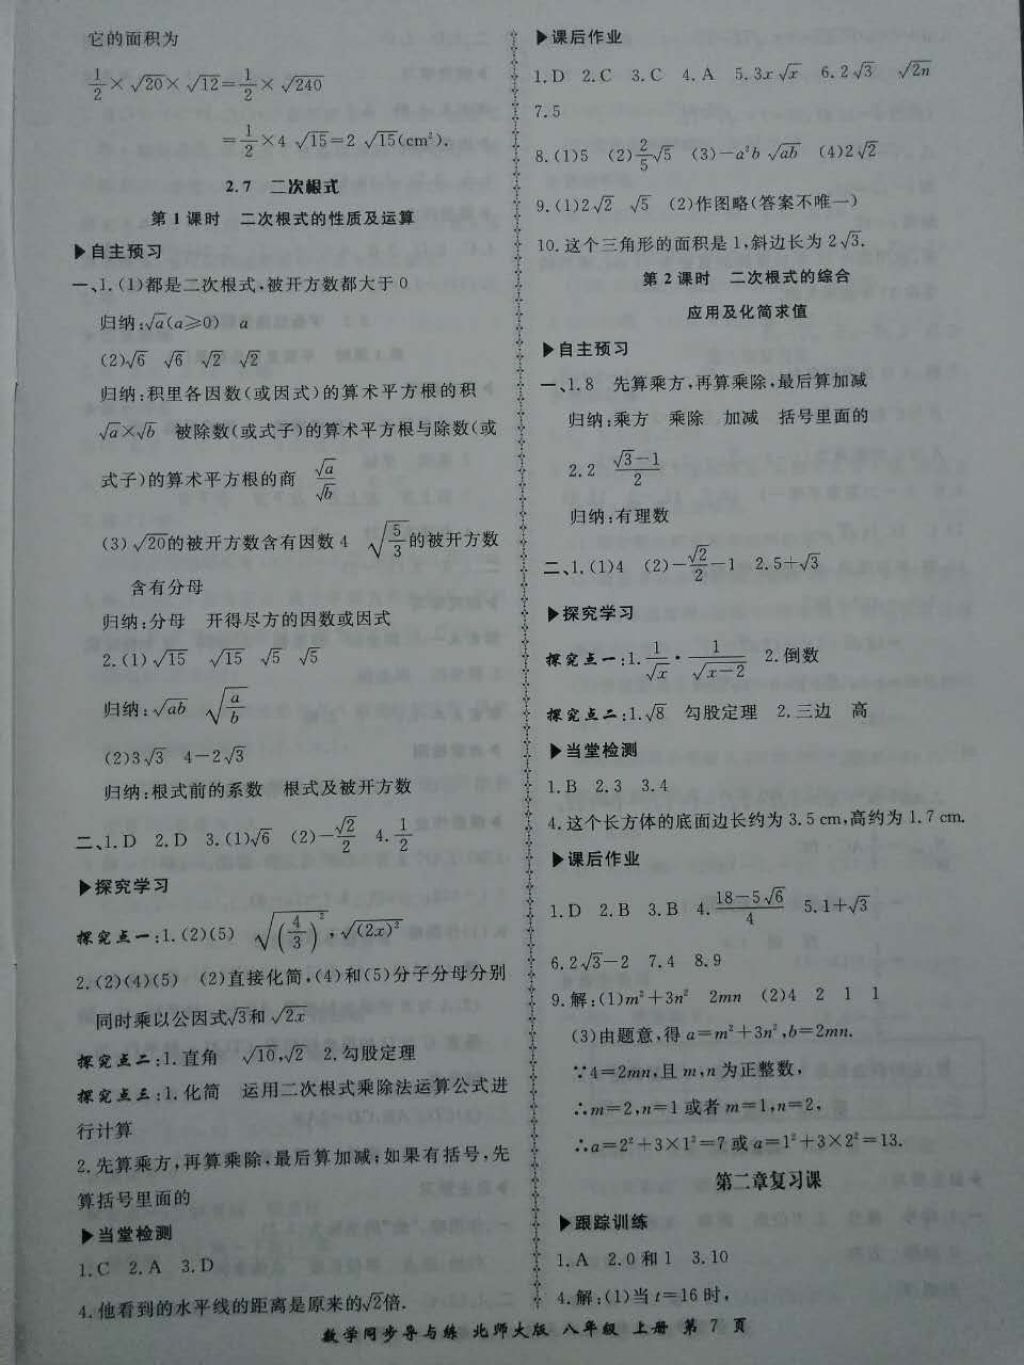 它的面积为
1/2×√20×√12=1/2×√240
=1/2×4√15=2√15(cm²).
2.7 二次根式
第1课时 二次根式的性质及运算
▶自主预习
一、1.(1)都是二次根式,被开方数都大于0
归纳:√a(a≥0) a
(2)√6 √6 √2 √2
归纳:积里各因数(或因式)的算术平方根的积
√a×√b 被除数(或式子)的算术平方根与除数(或
式子)的算术平方根的商 √a/√b
(3)√20的被开方数含有因数4 √(5/3)的被开方数
含有分母
归纳:分母 开得尽方的因数或因式
2.(1)√15 √15 √5 √5
归纳:√ab √(a/b)
(2)3√3 4-2√3
归纳:根式前的系数 根式及被开方数
二、1.D 2.D 3.(1)√6 (2)-√2/2 4.1/2
▶探究学习
探究点一:1.(2)(5) √(4/3)²,√(2x)²
2.(2)(4)(5) (2)直接化简,(4)和(5)分子分母分别
同时乘以公因式√3和√2x
探究点二:1.直角 √10,√2 2.勾股定理
探究点三:1.化简 运用二次根式乘除法运算公式进
行计算
2.先算乘方,再算乘除,最后算加减;如果有括号,先
算括号里面的
▶当堂检测
1.C 2.A 3.D
4.他看到的水平线的距离是原来的√2倍.
▶课后作业
1.D 2.C 3.C 4.A 5.3x√x 6.2√3 √2n
7.5
8.(1)5 (2)2/5√5 (3)-a²b√ab (4)2√2
9.(1)2√2 √5 (2)作图略(答案不唯一)
10.这个三角形的面积是1,斜边长为2√3.
第2课时 二次根式的综合
应用及化简求值
▶自主预习
一、1.8 先算乘方,再算乘除,最后算加减
归纳:乘方 乘除 加减 括号里面的
2.2 (√3-1)/2
归纳:有理数
二、1.(1)4 (2)-√2/2-1 2.5+√3
▶探究学习
探究点一:1.1/√x·1/√(x-2) 2.倒数
探究点二:1.√8 勾股定理 2.三边 高
▶当堂检测
1.B 2.3 3.4
4.这个长方体的底面边长约为3.5 cm,高约为1.7 cm.
▶课后作业
1.D 2.B 3.B 4.(18-5√6)/4 5.1+√3
6.2√3-2 7.4 8.9
9.解:(1)m²+3n² 2mn (2)4 2 1 1
(3)由题意,得a=m²+3n²,b=2mn.
∵4=2mn,且m,n为正整数,
∴m=2,n=1或者m=1,n=2,
∴a=2²+3×1²=7或a=1²+3×2²=13.
第二章复习课
▶跟踪训练
1.A 2.0和1 3.10
4.解:(1)当t=16时,
数学同步导与练 北师大版 八年级 上册 第 7 页